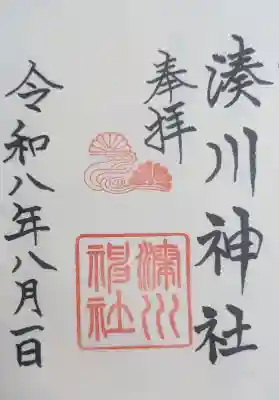 湊川神社
奉拝
湊川神社
令和八年八月一日